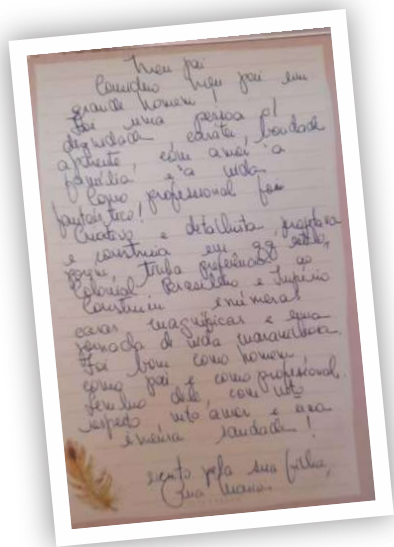 Meu pai
Considero meu pai um
grande homem!
Foi uma pessoa c/
dignidade, caráter, bondade
aparente, com amor a
família e a vida.
Como profissional foi
fantástico!
Criativo e detalhista, projetava
e construía em qq estilo,
porém, tinha preferência ao
Colonial Brasileiro e Império
Construiu inúmeras
casas magníficas e uma
jornada de vida maravilhosa.
Foi bom como homem,
como pai e como profissional.
Lembro dele, com mto
respeito mto amor e uma
imensa saudade!
escrito pela sua filha,
Ana Maria.